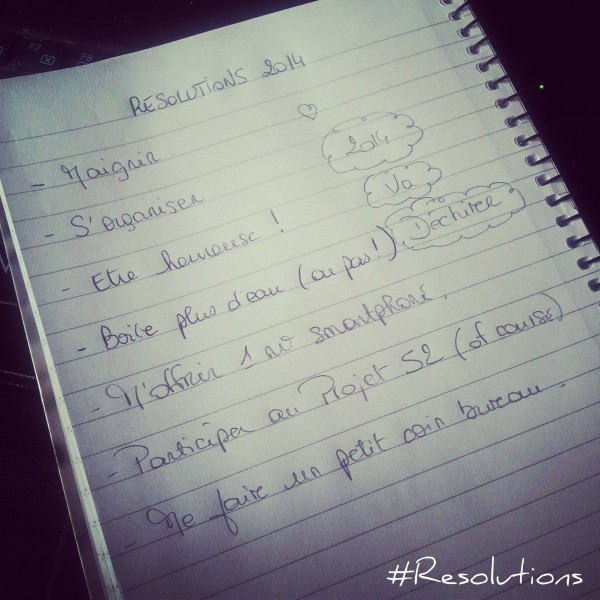 RESOLUTIONS 2014
- Maigrir
- S'organiser
- Etre heureuse !
- Boire plus d'eau (ou pas !)
- M'offrir 1 nv smartphone.
- Participer au Projet 52 (of course)
- Me faire un petit coin bureau.
2014
Va
Déchirer
#Resolutions